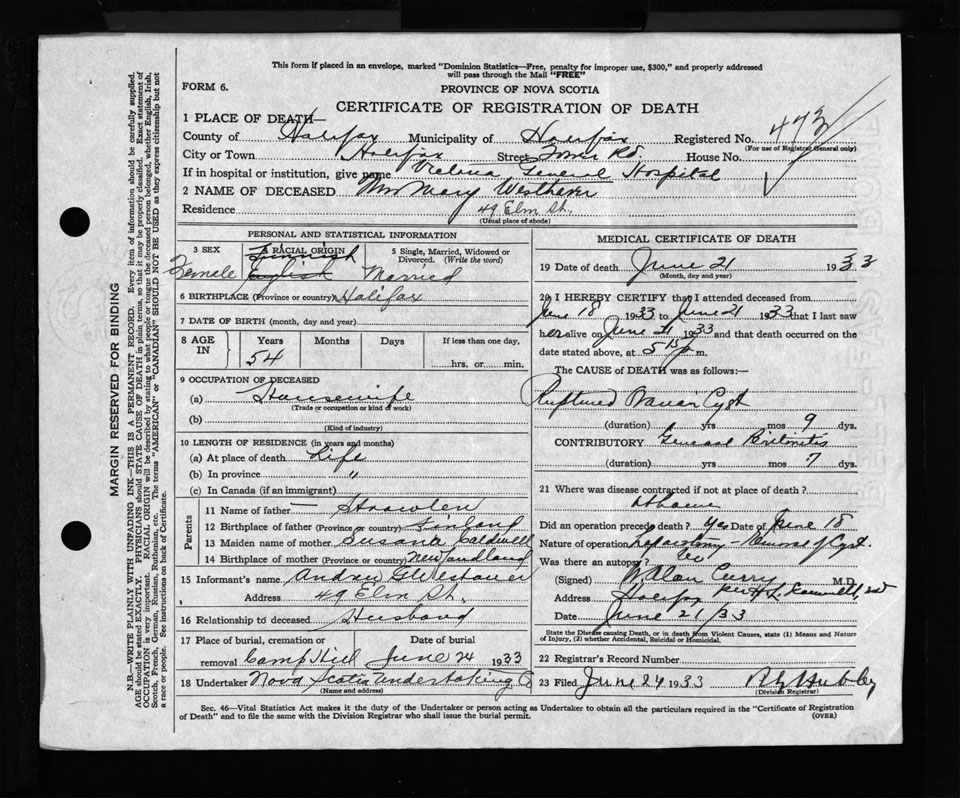 This form if placed in an envelope, marked "Dominion Statistics—Free, penalty for improper use, $300," and properly addressed
will pass through the Mail "FREE"
FORM 6.
PROVINCE OF NOVA SCOTIA
CERTIFICATE OF REGISTRATION OF DEATH
1 PLACE OF DEATH—
County of Halifax Municipality of Halifax Registered No. 473
(For use of Registrar General only)
City or Town Halifax Street Tower Rd. House No.
If in hospital or institution, give name Victoria General Hospital
2 NAME OF DECEASED Mrs Mary Westhaver
Residence 49 Elm St.
(Usual place of abode)
PERSONAL AND STATISTICAL INFORMATION
3 SEX Female
RACIAL ORIGIN Finnish English
5 Single, Married, Widowed or Divorced. (Write the word) Married
6 BIRTHPLACE (Province or country) Halifax
7 DATE OF BIRTH (month, day and year)
8 AGE IN Years Months Days If less than one day,
54 hrs. or min.
9 OCCUPATION OF DECEASED
(a) Housewife
(Trade or occupation or kind of work)
(b)
(Kind of industry)
10 LENGTH OF RESIDENCE (in years and months)
(a) At place of death Life
(b) In province "
(c) In Canada (if an immigrant)
Parents
11 Name of father —
12 Birthplace of father (Province or country) Finland
13 Maiden name of mother Susana Caldwell
14 Birthplace of mother (Province or country) Newfoundland
15 Informant's name Andrew
Address 49 Elm St.
16 Relationship to deceased Husband
17 Place of burial, cremation or removal Camp Hill Date of burial June 24 1933
18 Undertaker Nova Scotia Undertaking Co
(Name and address)
MEDICAL CERTIFICATE OF DEATH
19 Date of death June 21 1933
(Month, day and year)
20 I HEREBY CERTIFY that I attended deceased from
June 18 1933 to June 21 1933 that I last saw
her alive on June 21 1933 and that death occurred on
date stated above, at 5 15 p m.
The CAUSE of DEATH was as follows:—
Ruptured Ovarian Cyst
(duration) yrs mos 9 dys.
CONTRIBUTORY General Peritonitis
(duration) yrs mos 7 dys.
21 Where was disease contracted if not at place of death?
At home
Did an operation precede death? Yes Date of June 18
Nature of operation Laparotomy — Removal of Cyst.
Was there an autopsy? No
(Signed) W Alan Curry M.D.
Address Halifax per H.L.
Date June 21/33
State the Disease causing Death, or in death from Violent Causes, state (1) Means and Nature
of Injury, (2) whether Accidental, Suicidal or Homicidal.
22 Registrar's Record Number
23 Filed June 24 1933 Hubley
(Division Registrar)
Sec. 46—Vital Statistics Act makes it the duty of the Undertaker or person acting as Undertaker to obtain all the particulars required in the "Certificate of Registration
of Death" and to file the same with the Division Registrar who shall issue the burial permit.
(OVER)
MARGIN RESERVED FOR BINDING
N.B.—WRITE PLAINLY WITH UNFADING INK—THIS IS A PERMANENT RECORD. Every item of information should be carefully supplied.
AGE should be stated EXACTLY. PHYSICIANS should STATE CAUSE OF DEATH in plain terms, so that it may be properly classified. Exact statement of
OCCUPATION is very important. RACIAL ORIGIN will be described by stating to what people or tongue the deceased person belonged, whether English, Irish,
Scotch, French, German, Russian, Ruthenian, etc. The terms "AMERICAN" or "CANADIAN" SHOULD NOT BE USED as they express citizenship but not
a race or people. See instructions on back of Certificate.